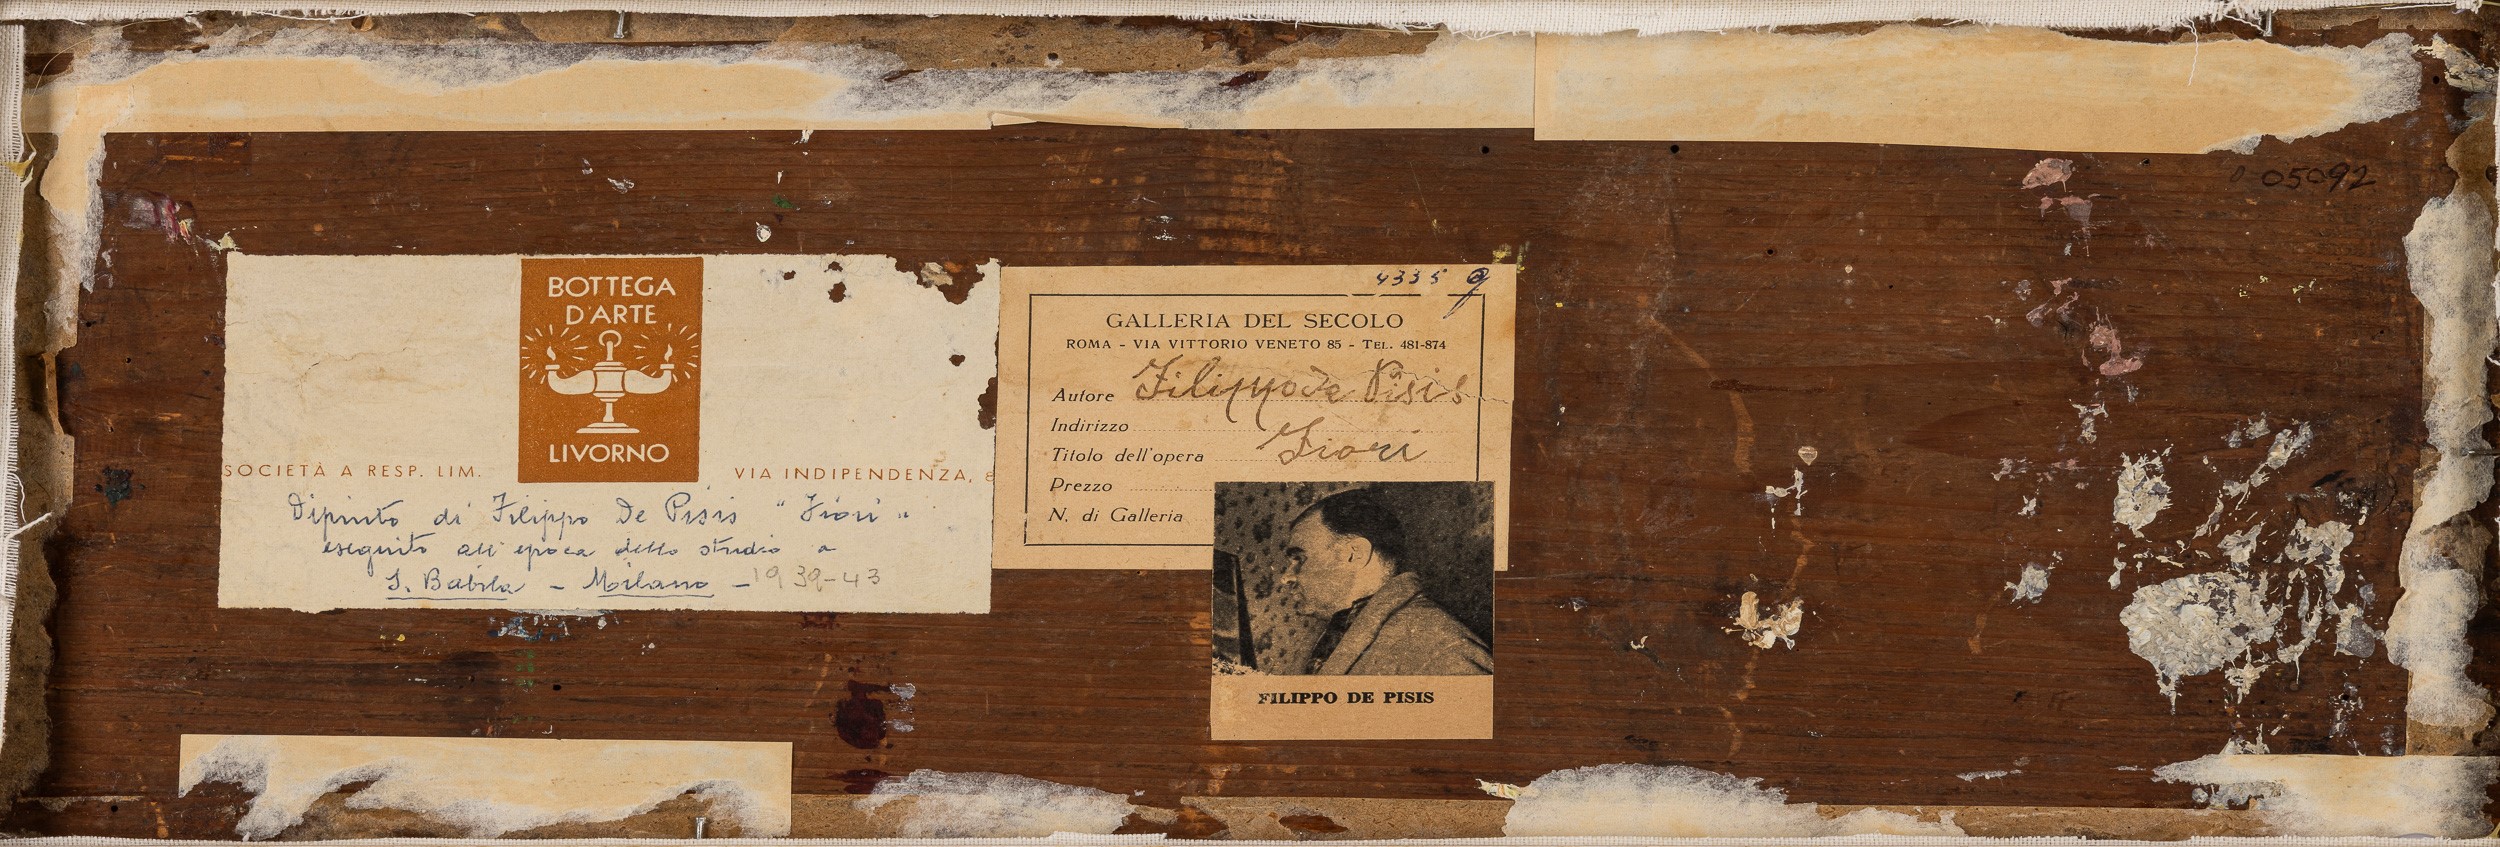 05092
BOTTEGA
D'ARTE
LIVORNO
SOCIETÀ A RESP. LIM. VIA INDIPENDENZA, 8
Dipinto di Filippo De Pisis "Fiori"
eseguito all'epoca dello studio a
S. Babila - Milano - 1939-43
4335
GALLERIA DEL SECOLO
ROMA - VIA VITTORIO VENETO 85 - TEL. 481-874
Autore Filippo de Pisis
Indirizzo
Titolo dell'opera Fiori
Prezzo
N. di Galleria
FILIPPO DE PISIS